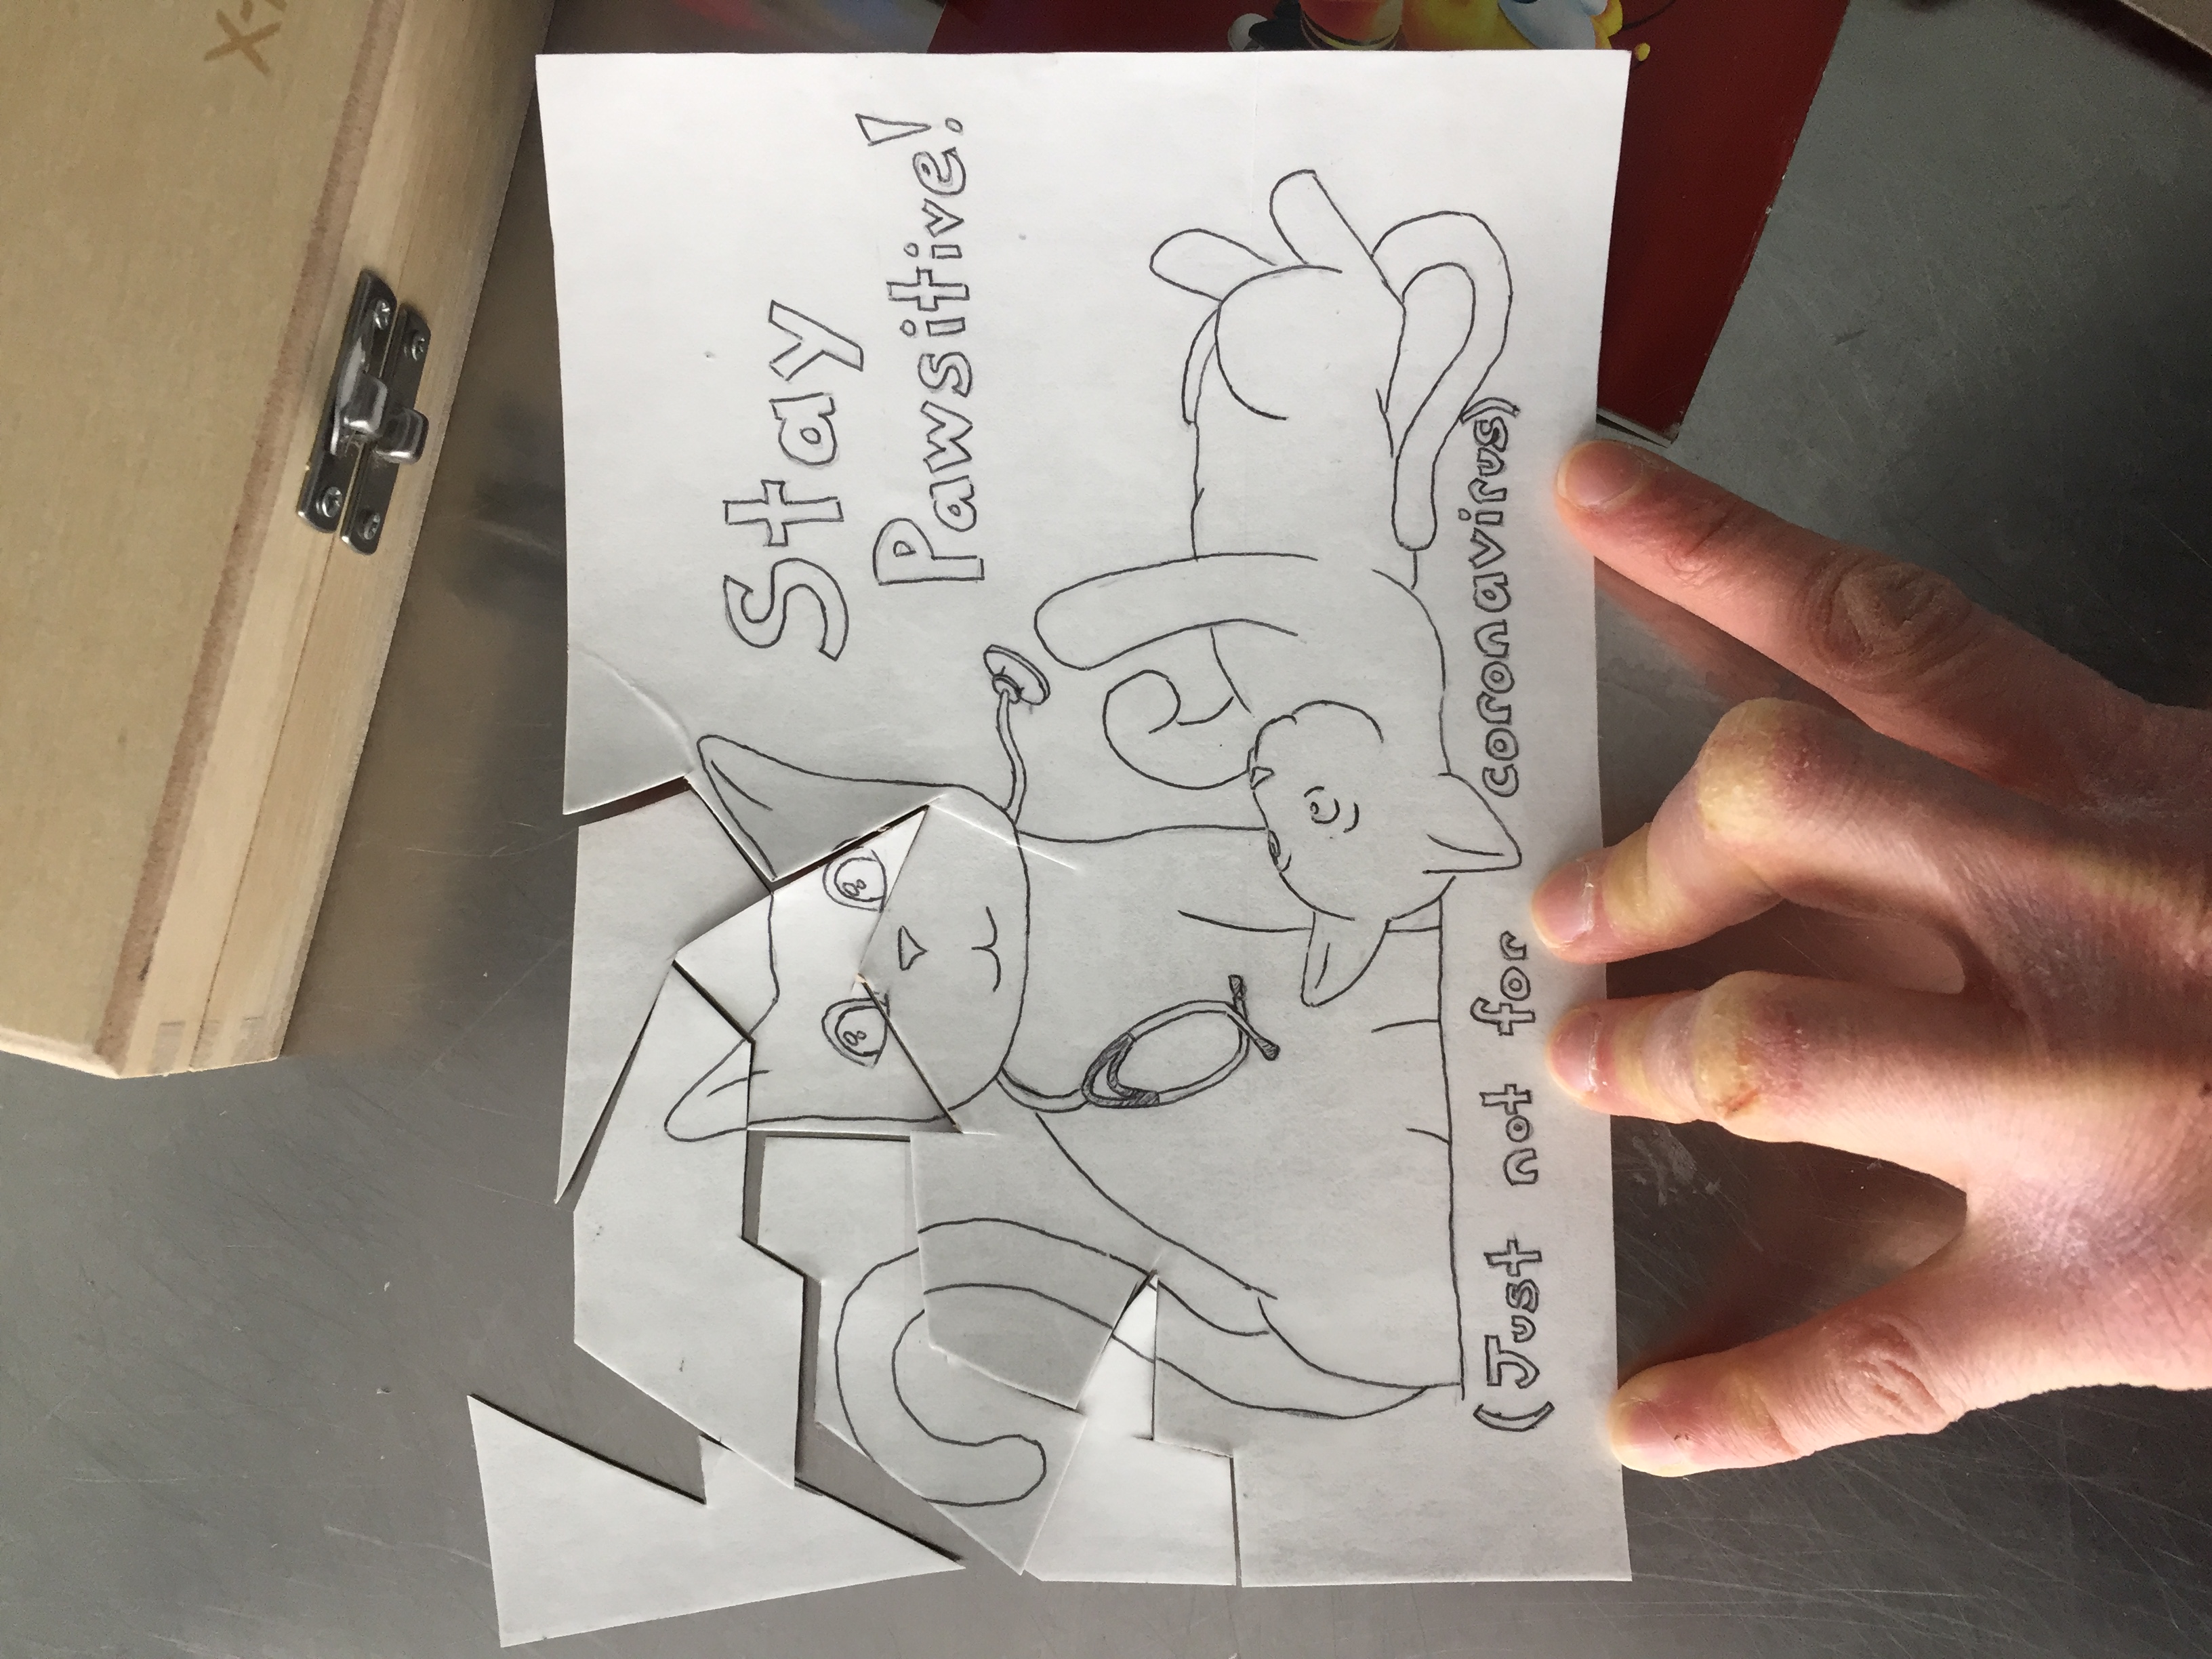 Stay
Pawsitive!
(Just not for coronavirus)